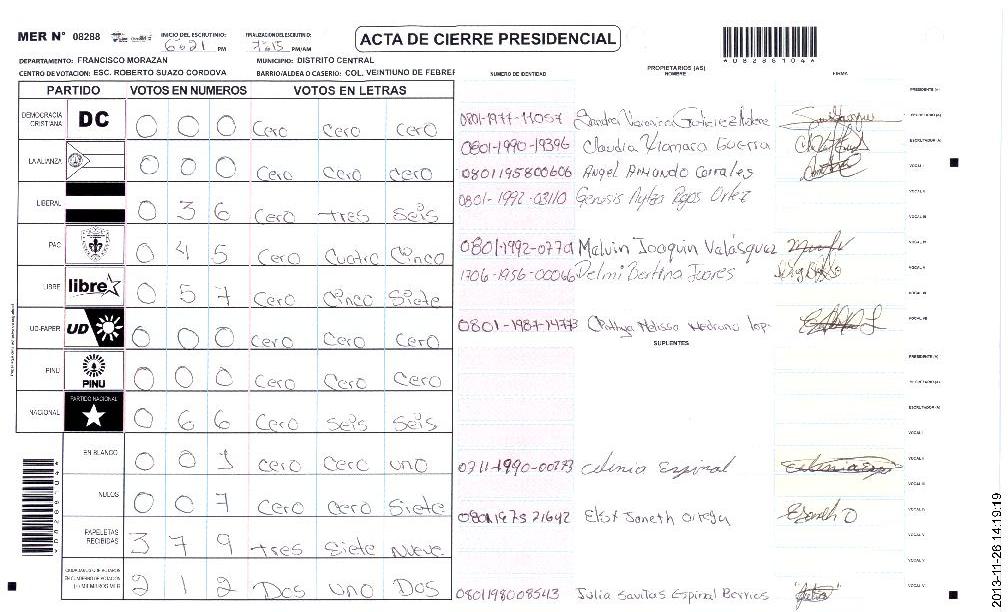 MER N° 08288 INICIO DEL ESCRUTINIO: 6:21 PM FINALIZACION DEL ESCRUTINIO: 7:15 PM/AM
ACTA DE CIERRE PRESIDENCIAL
*08288104*
DEPARTAMENTO: FRANCISCO MORAZAN MUNICIPIO: DISTRITO CENTRAL
CENTRO DE VOTACION: ESC. ROBERTO SUAZO CORDOVA BARRIO/ALDEA O CASERIO: COL. VEINTIUNO DE FEBREF
PARTIDO VOTOS EN NUMEROS VOTOS EN LETRAS
DEMOCRACIA CRISTIANA DC 0 0 0 Cero Cero Cero
LA ALIANZA 0 0 0 Cero Cero Cero
LIBERAL 0 3 6 Cero Tres Seis
PAC 0 4 5 Cero Cuatro Cinco
LIBRE libre 0 5 7 Cero Cinco Siete
UD-FAPER UD 0 0 0 Cero Cero Cero
PINU PINU 0 0 0 Cero Cero Cero
NACIONAL PARTIDO NACIONAL 0 6 6 Cero Seis Seis
EN BLANCO 0 0 1 Cero Cero uno
NULOS 0 0 7 Cero Cero Siete
PAPELETAS RECIBIDAS 3 7 9 Tres Siete Nueve
2 1 2 Dos uno Dos
NUMERO DE IDENTIDAD PROPIETARIOS (AS) NOMBRE FIRMA
PRESIDENTE (A)
0801-1977-11057 Sandra Veronica Gutierrez
SECRETARIO (A)
0801-1990-19396 Claudia Xiomara Guerra
ESCRUTADOR (A)
0801195800606 Angel Armando Corrales
VOCAL I
0801-1992-03110 Genesis Ortez
VOCAL II
VOCAL III
0801-1992-07701 Malvin Joaquin Valásquez
VOCAL IV
1706-1956-00066 Delmi Bertina
VOCAL V
VOCAL VI
0801-1987-14773 Melissa Medrano Lop
VOCAL VII
SUPLENTES
PRESIDENTE (A)
SECRETARIO (A)
ESCRUTADOR (A)
VOCAL I
0711-1990-00273 Espinal
VOCAL II
VOCAL III
0801197521642 Janeth Ortega
VOCAL IV
VOCAL V
VOCAL VI
0801198008543 Julia Espinal Berrios
2013-11-26 14:19:19